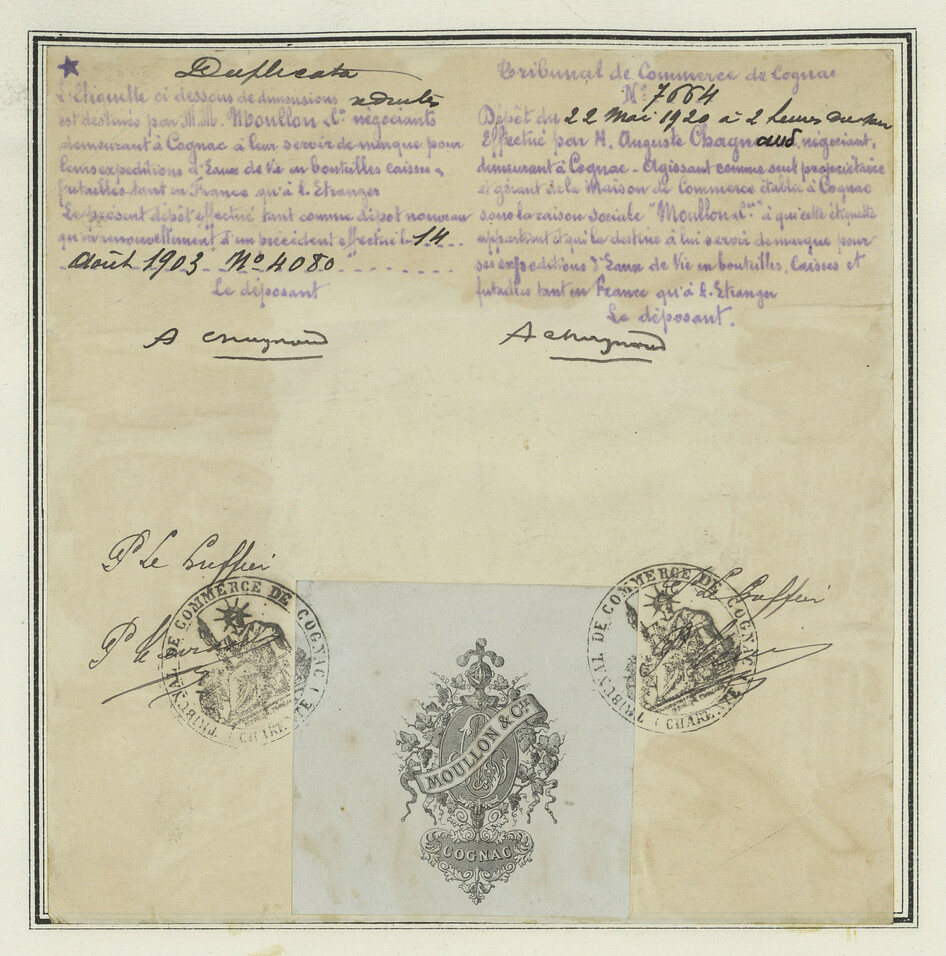 Duplicata
L'Etiquette ci dessous de dimensions réduites
est destinée par M.M. Moullon & Cie négociants
demeurant à Cognac à leur servir de marque pour
leurs expéditions d'Eaux de Vie en bouteilles caisses &
futailles tant en France qu'à l'Etranger
Le présent dépôt effectué tant comme dépôt nouveau
qu'en renouvellement d'un précédent effectué le 14
Août 1903 No 4080
Le déposant
A Chagnaud
Tribunal de Commerce de Cognac
No 7664
Dépôt du 22 Mai 1920 à 2 heures du soir
Effectué par M. Auguste Chagnaud, négociant,
demeurant à Cognac - Agissant comme seul propriétaire
et gérant de la Maison de Commerce établie à Cognac
sous la raison sociale "Moullon & Cie" à qui cette étiquette
appartient et qui la destine à lui servir de marque pour
ses expéditions d'Eaux de Vie en bouteilles, Caisses et
futailles tant en France qu'à l'Etranger
Le déposant.
A Chagnaud
P Le Greffier
TRIBUNAL DE COMMERCE DE COGNAC (CHARENTE)
P Le Greffier
TRIBUNAL DE COMMERCE DE COGNAC (CHARENTE)
MOULLON & CIE
COGNAC